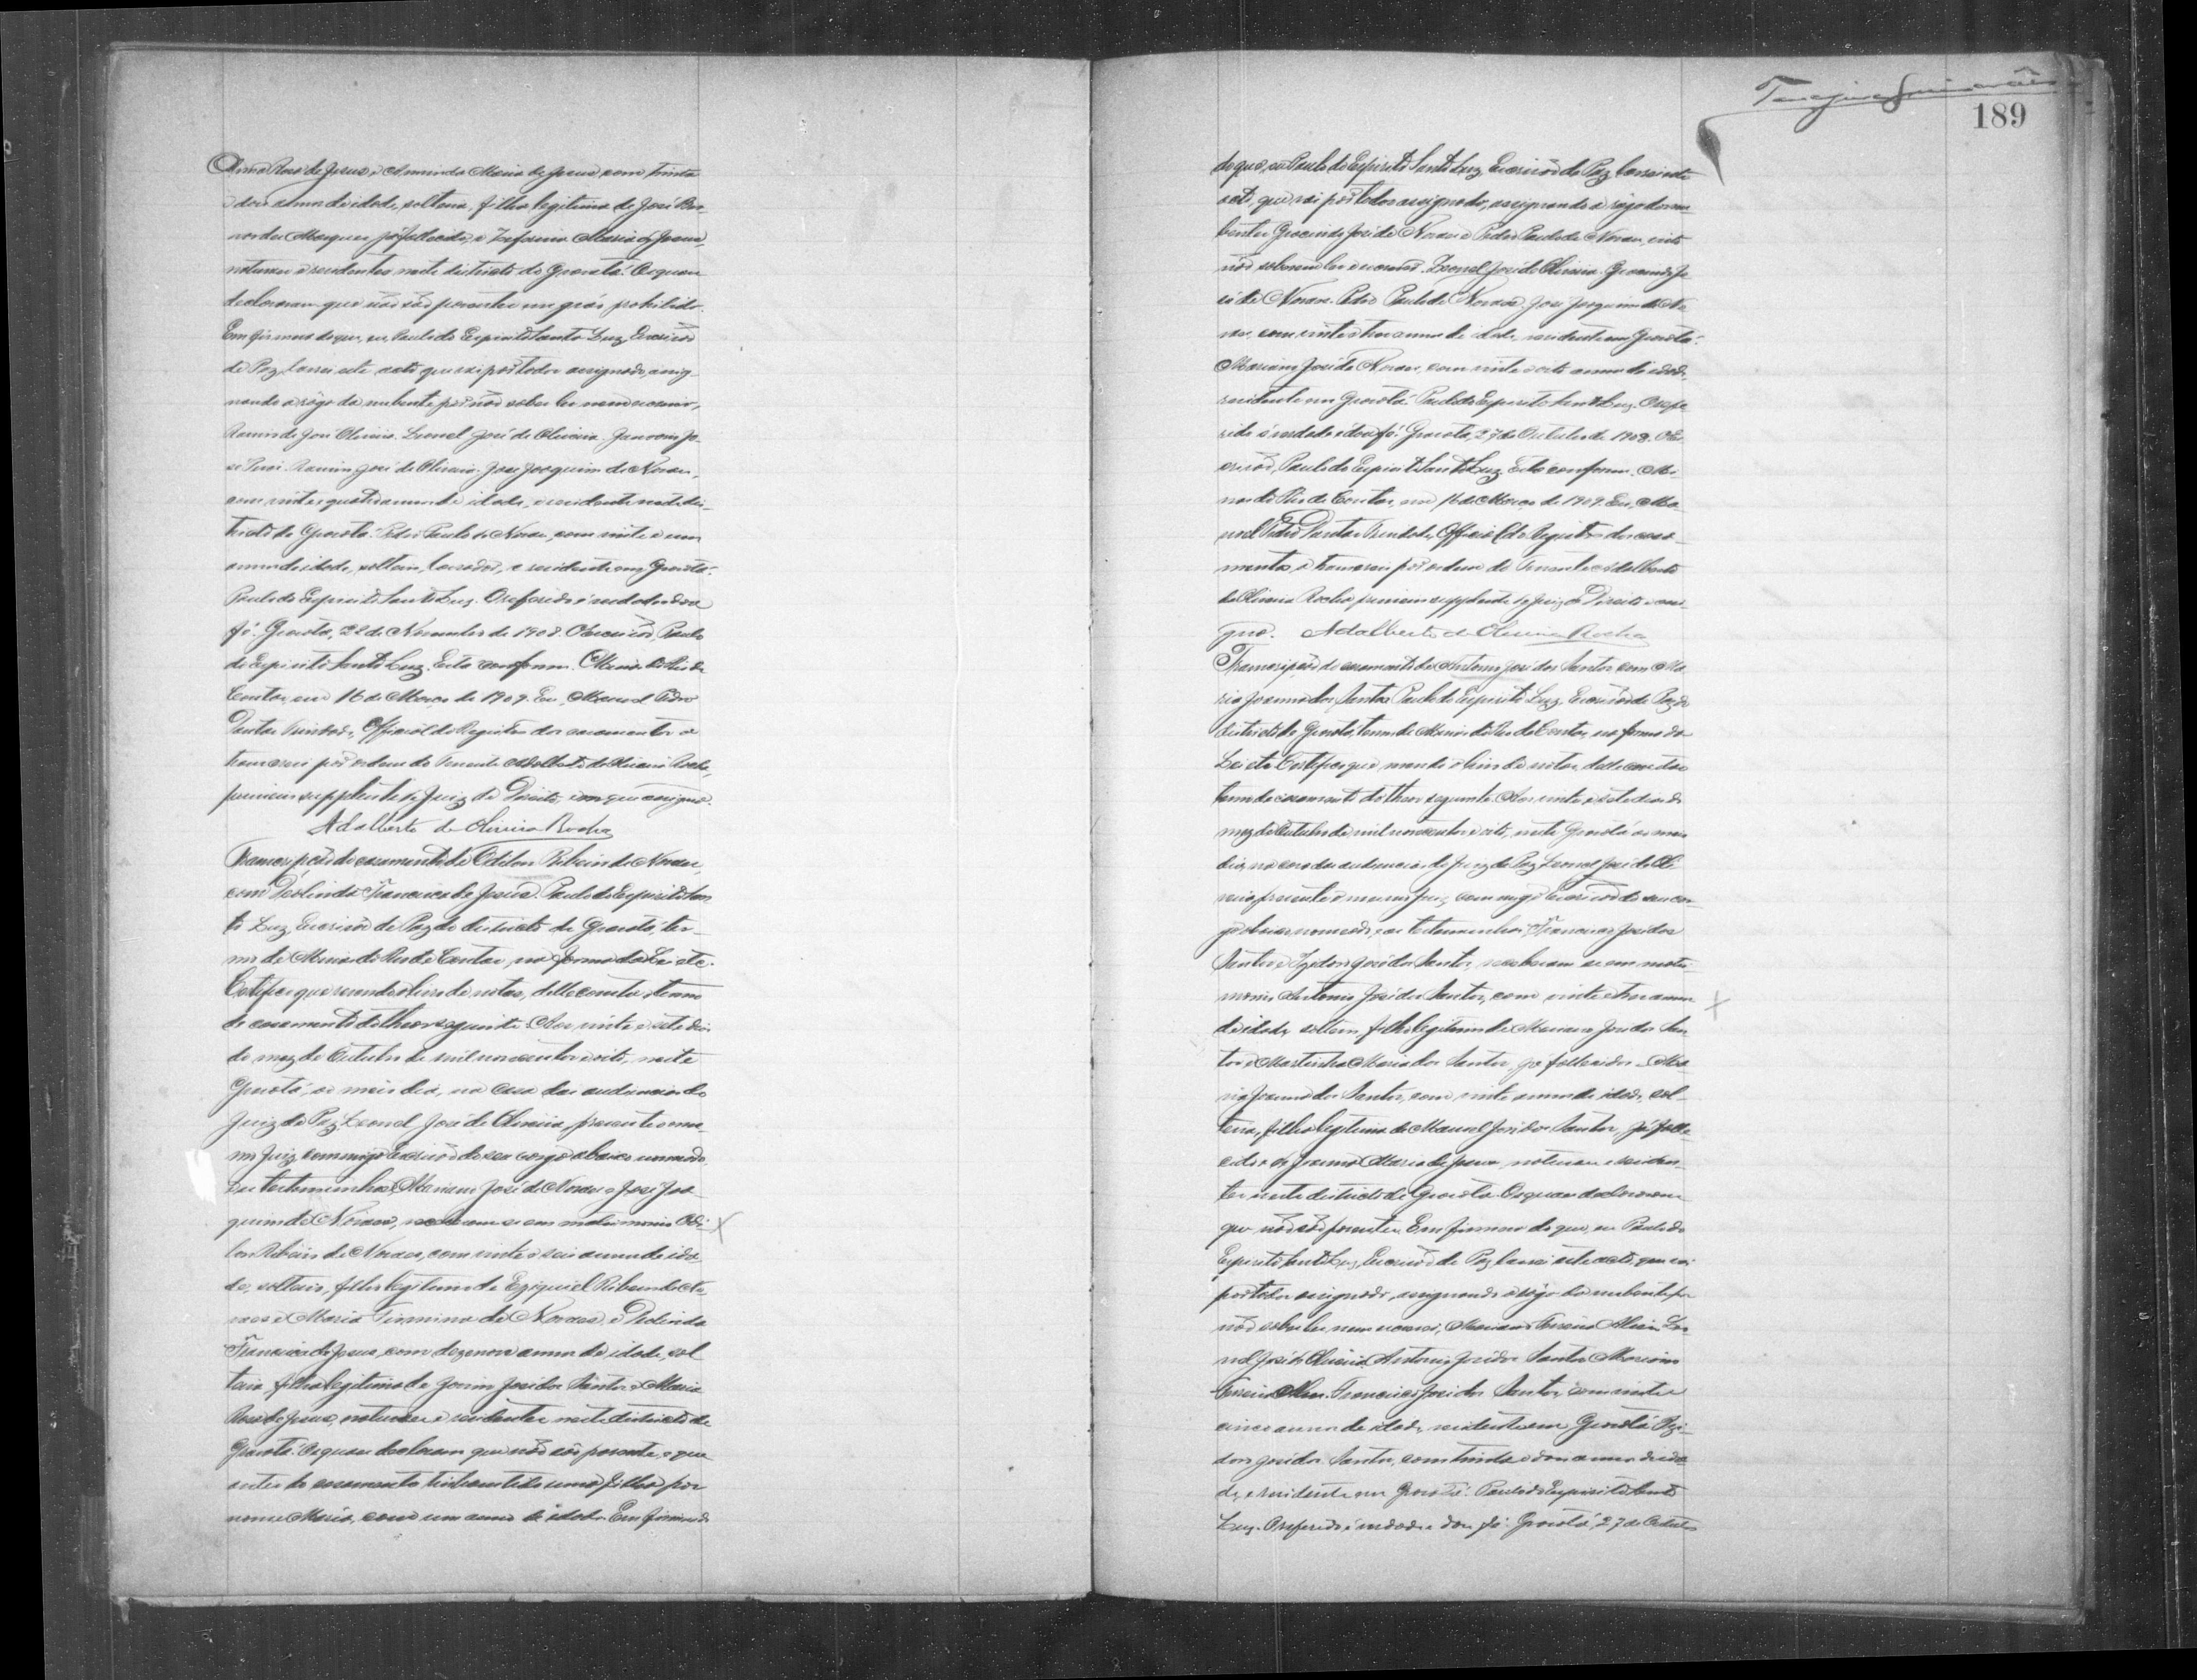 Anna Rosa de Jesus, e Arminda Maria de Jesus com trinta
e dois annos de idade, solteira, filha legitima de José Ber-
nardes Marques já fallecido, e Maria de Jesus,
naturaes e residentes neste districto de Gravatá. Os quaes
declararam que não são parentes em gráo prohibido.
Em firmesa do que, eu, Paulo do Espirito Santo Luz, Escrivão
de Paz, lavrei este acto que vai por todos assignado, assig-
nando a rôgo da nubente por não saber ler nem escrever,
José Oliveira. Leonel José de Oliveira. Jo-
sé José de Oliveira. José Joaquim de Novaes,
com vinte e quatro annos de idade, e residente neste dis-
tricto de Gravatá. Pedro Paulo de Novaes, com vinte e um
annos de idade, solteiro, lavrador, e residente em Gravatá.
Paulo do Espirito Santo Luz. O referido é verdade e dou
fé. Gravatá, 22 de Novembro de 1908. O Escrivão, Paulo
do Espirito Santo Luz. Está conforme. Minas do Rio de
Contas, em 16 de Março de 1909. Eu, Manoel Pedro
Dantas Trindade, Official do Registro dos casamentos o
transcrevi por ordem do Tenente Adalberto de Oliveira Rocha,
primeiro supplente do Juiz de Direito, em que assignou.
Adalberto de Oliveira Rocha
Transcripção do casamento de Odilon Ribeiro de Novaes,
com Deolinda Francisca de Jesus. Paulo do Espirito San-
to Luz, Escrivão de Paz do districto de Gravatá, ter-
mo de Minas do Rio de Contas, na forma da Lei etc.
Certifico que revendo o livro de notas, delle consta o termo
de casamento do theor seguinte: Aos vinte e sete dias
do mez de Outubro de mil novecentos e oito, neste
Gravatá, ao meio dia, na casa das audiencias do
Juiz de Paz Leonel José de Oliveira, presente o mes-
mo Juiz, commigo Escrivão do seu cargo abaixo nomeado,
e as testemunhas, Mariano José de Novaes e José Joa-
quim de Novaes, receberam-se em matrimonio Odi-
lon Ribeiro de Novaes, com vinte e seis annos de ida-
de, solteiro, filho legitimo de Ezequiel Ribeiro de No-
vaes e Maria Firmina de Novaes, e Deolinda
Francisca de Jesus, com dezenove annos de idade, sol-
teira filha legitima de José dos Santos e Maria
Rosa de Jesus, naturaes e residentes neste districto de
Gravatá. Os quaes declararam que não são parentes, e que
antes do casamento tinham tido uma filha por
nome Maria, com um anno de idade. Em firmesa
189
do que, eu Paulo do Espirito Santo Luz, Escrivão de Paz lavrei este
acto, que vai por todos assignado, assignando a rôgo dos nu-
bentes José de Novaes e Pedro Paulo de Novaes, visto
não saberem ler e escrever. Leonel José de Oliveira. Jo-
sé de Novaes. Pedro Paulo de Novaes. José Joaquim de No-
vaes, com vinte e tres annos de idade, residente em Gravatá.
Mariano José de Novaes, com vinte e oito annos de idade,
residente em Gravatá. Paulo do Espirito Santo Luz. O refe-
rido é verdade e dou fé. Gravatá, 27 de Outubro de 1908. O Es-
crivão, Paulo do Espirito Santo Luz. Está conforme. Mi-
nas do Rio de Contas, em 16 de Março de 1909. Eu, Ma-
noel Pedro Dantas Trindade, Official do Registro dos casa-
mentos o transcrevi por ordem do Tenente Adalberto
de Oliveira Rocha primeiro supplente do Juiz de Direito e assi-
gnou. Adalberto de Oliveira Rocha
Transcripção do casamento de Antonio José dos Santos com Ma-
ria Joanna dos Santos. Paulo do Espirito Luz, Escrivão de Paz do
districto de Gravatá, termo de Minas do Rio de Contas, na forma da
Lei etc. Certifico que, revendo o livro de notas, delle consta o
termo de casamento do theor seguinte: Aos vinte e sete dias do
mez de Outubro de mil novecentos e oito, neste Gravatá ao meio
dia, na casa das audiencias do Juiz de Paz Leonel José de Oli-
veira, presente o mesmo Juiz, commigo Escrivão do seu car-
go abaixo nomeado, e as testemunhas, Francisco José dos
Santos e Izidoro José dos Santos, receberam-se em matri-
monio Antonio José dos Santos, com vinte e tres annos
de idade, solteiro, filho legitimo de Mariano José dos San-
tos e Martinha Maria dos Santos, já fallecidos. Ma-
ria Joanna dos Santos, com vinte annos de idade, sol-
teira, filha legitima de Manoel José dos Santos, já falle-
cido e de Joanna Maria de Jesus, naturaes e residen-
tes neste districto de Gravatá. Os quaes declararam
que não são parentes. Em firmesa do que, eu Paulo do
Espirito Santo Luz, Escrivão de Paz lavrei este acto, que vai
por todos assignado, assignando a rôgo da nubente por
não saber ler nem escrever, Mariano Ferreira Leo-
nel José de Oliveira. Antonio José dos Santos. Mariano
Ferreira Francisco José dos Santos, com vinte e
cinco annos de idade, residente em Gravatá. Izi-
doro José dos Santos, com trinta e dois annos de ida-
de, e residente em Gravatá. Paulo do Espirito Santo
Luz. O referido é verdade e dou fé. Gravatá, 27 de Outubro